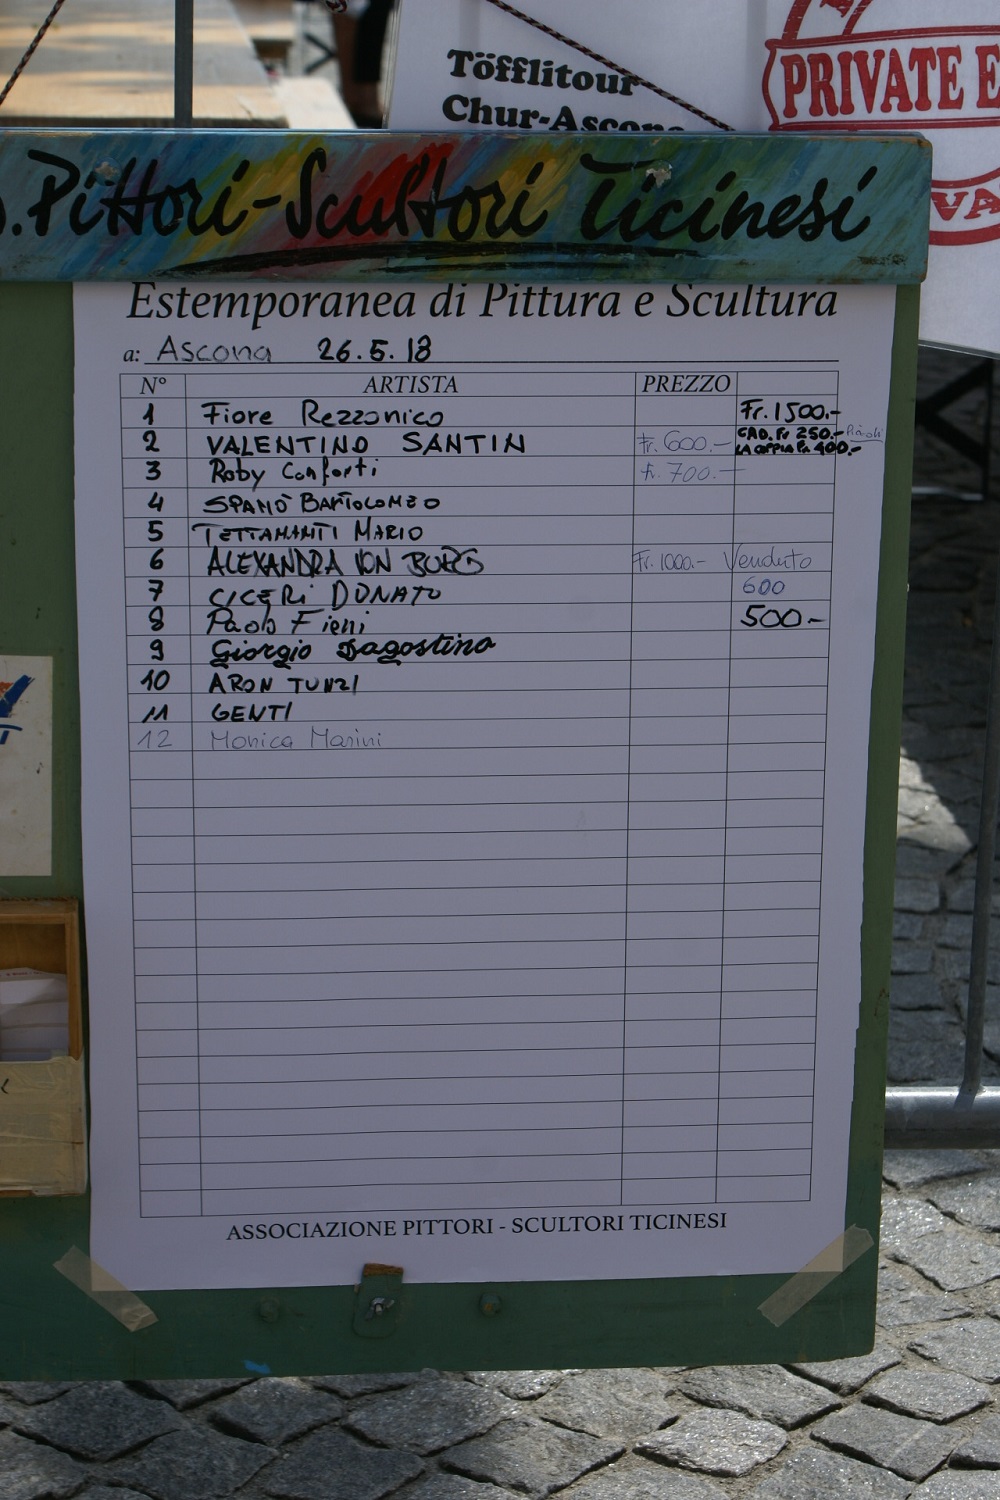 Töfflitour
Chur-Ascona
PRIVATE E
VA
. Pittori-Scultori Ticinesi
Estemporanea di Pittura e Scultura
a: Ascona 26.5.18
N° ARTISTA PREZZO
1 Fiore Rezzonico Fr. 1500.-
2 VALENTINO SANTIN Fr. 600.- CAD. Fr 250.-
LA COPPIA Fr. 400.-
3 Roby Conforti Fr. 700.-
4 SPANÒ BARTOLOMEO
5 TETTAMANTI MARIO
6 ALEXANDRA VON BURG Fr. 1000.- Venduto
7 CICERI DONATO 600
8 Paolo Fieni 500-
9 Giorgio Dagostino
10 ARON TUNZI
11 GENTI
12 Monica Marini
ASSOCIAZIONE PITTORI - SCULTORI TICINESI